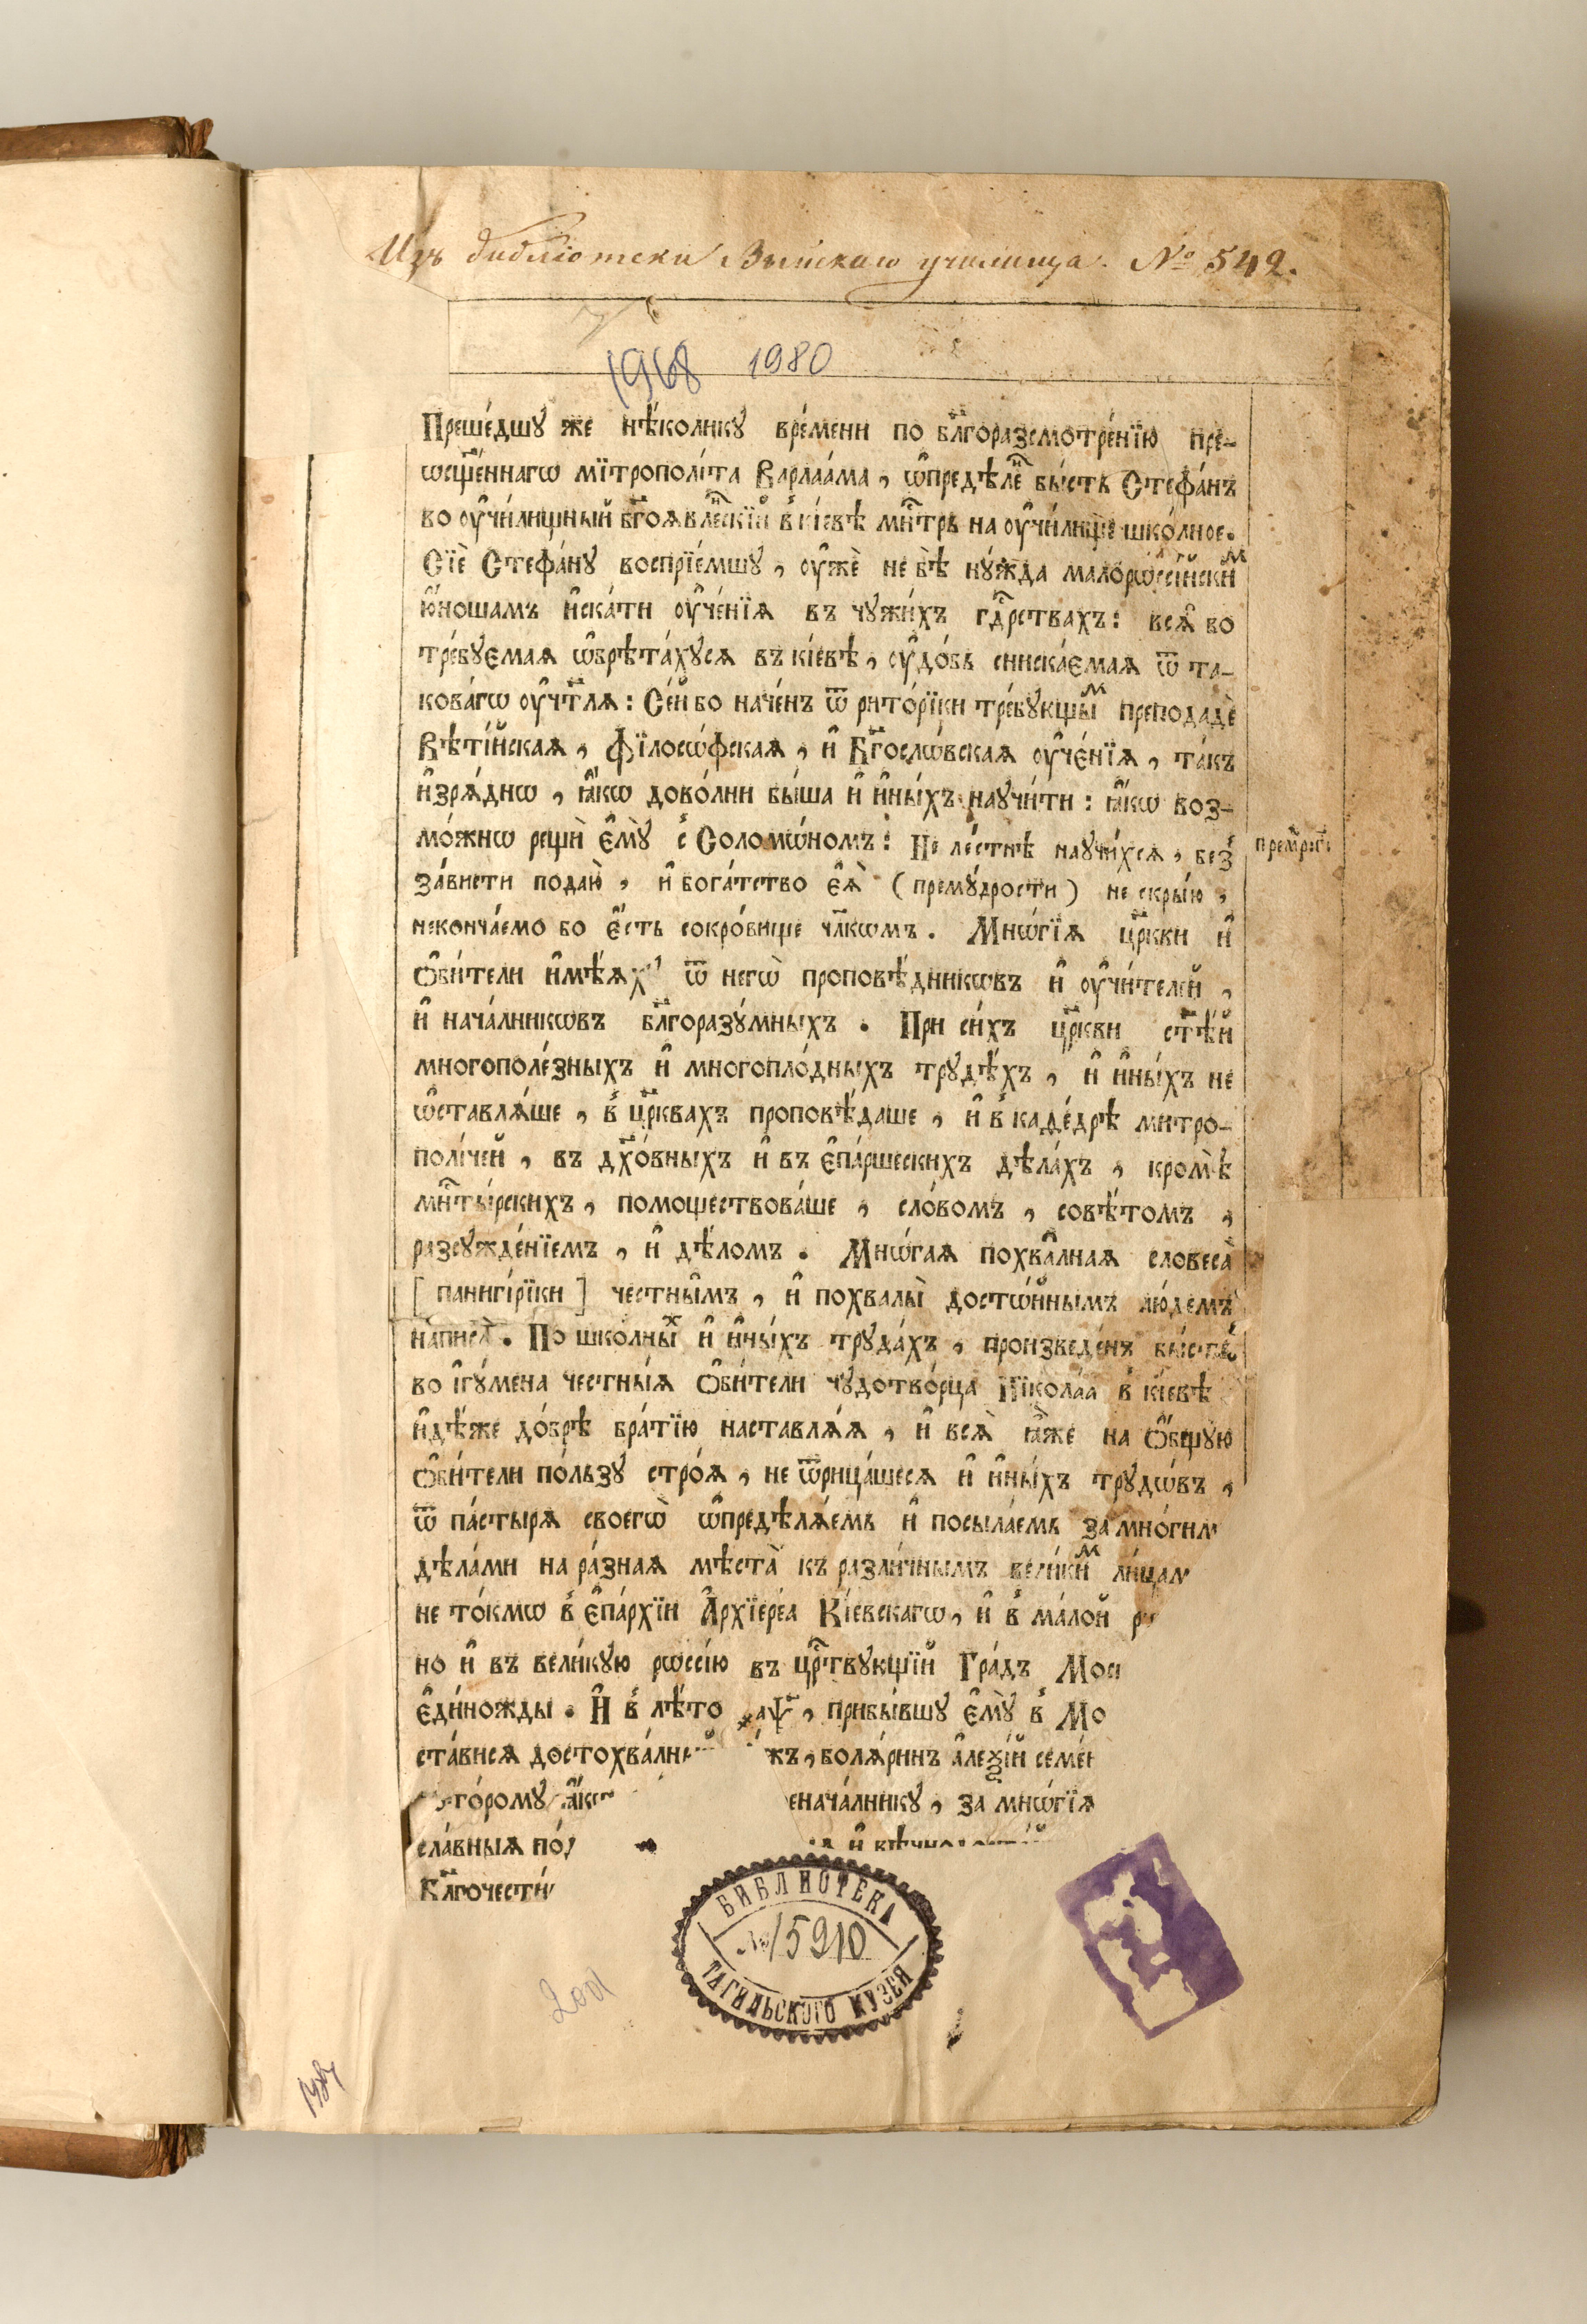 Изъ библіотеки Выйскаго училища. № 542.
1968 1980
Преше́дшꙋ же нѣ́коликꙋ вре́мени по бл҃горазсмотре́нїю пре-
ѡсщ҃е́ннагѡ мїтрополі́та Варлаа́ма, ѡ҆предѣле҃ бы́сть Стефа́нъ
во ᲂу҆чи́лищный бг҃оѧвле́нскїй в̾ кі́евѣ мн҃трь на ᲂу҆чи́лище шко́лное.
Сїѐ Стефа́нꙋ воспрїе́мшꙋ, ᲂу҆жѐ не бѣ̀ нꙋ́жда малорѡссі́йскиⷨ
ю҆́ношамъ и҆ска́ти ᲂу҆че́нїѧ въ чꙋжи́хъ гд҃рствахъ: всѧ̑ бо
тре́бꙋемаѧ ѡ҆брѣта́хꙋсѧ въ кі́евѣ, ᲂу҆до́бь сниска́емаѧ ѿ та-
кова́гѡ ᲂу҆чт҃лѧ: Се́й бо наче́нъ ѿ рито́рїки тре́бꙋющыⷨ преподадѐ
Вѣті́йскаѧ, Фїлосѡ́фскаѧ, и҆ Бг҃ослѡ́вскаѧ ᲂу҆че́нїѧ, та́кѡ
и҆зрѧ́днѡ, ꙗ҆́кѡ дово́лни бы́ша и҆ и҆ны́хъ наꙋчи́ти: ꙗ҆́кѡ воз-
мо́жнѡ рещѝ є҆мꙋ̀ с̾ Соломѡ́номъ: Не ле́стнѣ наꙋчи́хсѧ, без̾
за́висти подаю̀, и҆ бога́тство є҆ѧ̀ (премꙋ́дрости) не скры́ю,
некончаемо бо є҆́сть сокро́вище чл҃кѡмъ. Мнѡ́гїѧ цр҃кви и҆
ѻ҆би́тели и҆мѣ́ѧхꙋ ѿ негѡ̀ проповѣ́дникѡвъ и҆ ᲂу҆чи́телей,
и҆ нача́лникѡвъ бл҃горазꙋ́мныхъ. При си́хъ цр҃кви ст҃ѣ́й
многополе́зныхъ и҆ многопло́дныхъ трꙋдѣ́хъ, и҆ и҆ны́хъ не
ѡ҆ставлѧ́ше, в̾ цр҃квахъ проповѣ́даше, и҆ в̾ каде́дрѣ митро-
полі́чей, въ дх҃о́вныхъ и҆ въ є҆па́ршескихъ дѣла́хъ, кромѣ̀
мн҃ты́рскихъ, помоществова́ше, сло́вомъ, совѣ́томъ,
разсꙋжде́нїемъ, и҆ дѣ́ломъ. Мнѡ́гаѧ похва̑лнаѧ словеса̀
[панигі́рїки] честны̑мъ, и҆ похвалы̀ достѡ́йнымъ лю́демъ
написа̀. По шко́лныⷯ и҆ и҆ны́хъ трꙋда́хъ, произведе́нъ бы́сть
во і҆гꙋ́мена честны́ѧ ѻ҆би́тели чꙋдотво́рца Нїкола́а в̾ кі́евѣ
и҆дѣ́же до́брѣ бра́тїю наставлѧ́ѧ, и҆ всѧ̑ ꙗ҆̀же на ѻ҆́бщꙋю
ѻ҆би́тели по́льзꙋ стро́ѧ, не ѿрица́шесѧ и҆ и҆ны́хъ трꙋдѡ́въ,
ѿ па́стырѧ своегѡ̀ ѡ҆предѣлѧ́емь и҆ посыла́емь за мно́гим
дѣла́ми на ра́знаѧ мѣста̀ къ разли́чнымъ вели́киⷨ ли́цам
не то́кмѡ в̾ є҆па́рхїи А҆рхїере́а Кі́евскагѡ, и҆ в̾ ма́лой р
но и҆ въ вели́кꙋю рѡссі́ю въ црⷭ҇твꙋющїй Гра́дъ Мос
є҆ди́ножды. И҆ в̾ лѣ́то ҂аѱ҃, прибы́вшꙋ є҆мꙋ̀ в̾ Мо
ста́висѧ достохва́лны жъ, болѧ́ринъ а҆леѯі́й семе́н
торо́мꙋ ꙗ҆́кѡ еначалникꙋ, за мнѡ́гїѧ
сла́вныѧ по и҆
Бл҃гочести
прем҃рⷭ҇:
БИБЛИОТЕКА
№ 15210
ТАГИЛЬСКОГО МУЗЕЯ